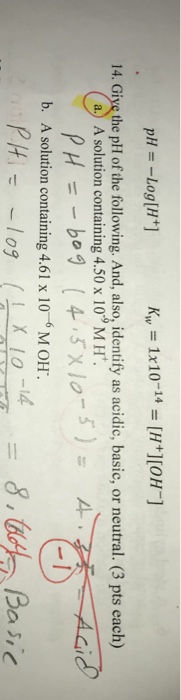 pH = -Log[H⁺]    Kw = 1x10⁻¹⁴ = [H⁺][OH⁻]
14. Give the pH of the following. And, also, identify as acidic, basic, or neutral. (3 pts each)
a. A solution containing 4.50 x 10⁻⁹ M H⁺.
PH = - log (4.5 x 10⁻⁵) = 4. = Acid
-1
b. A solution containing 4.61 x 10⁻⁶ M OH⁻.
PH = - log (1 x 10⁻¹⁴ = 8. Basic